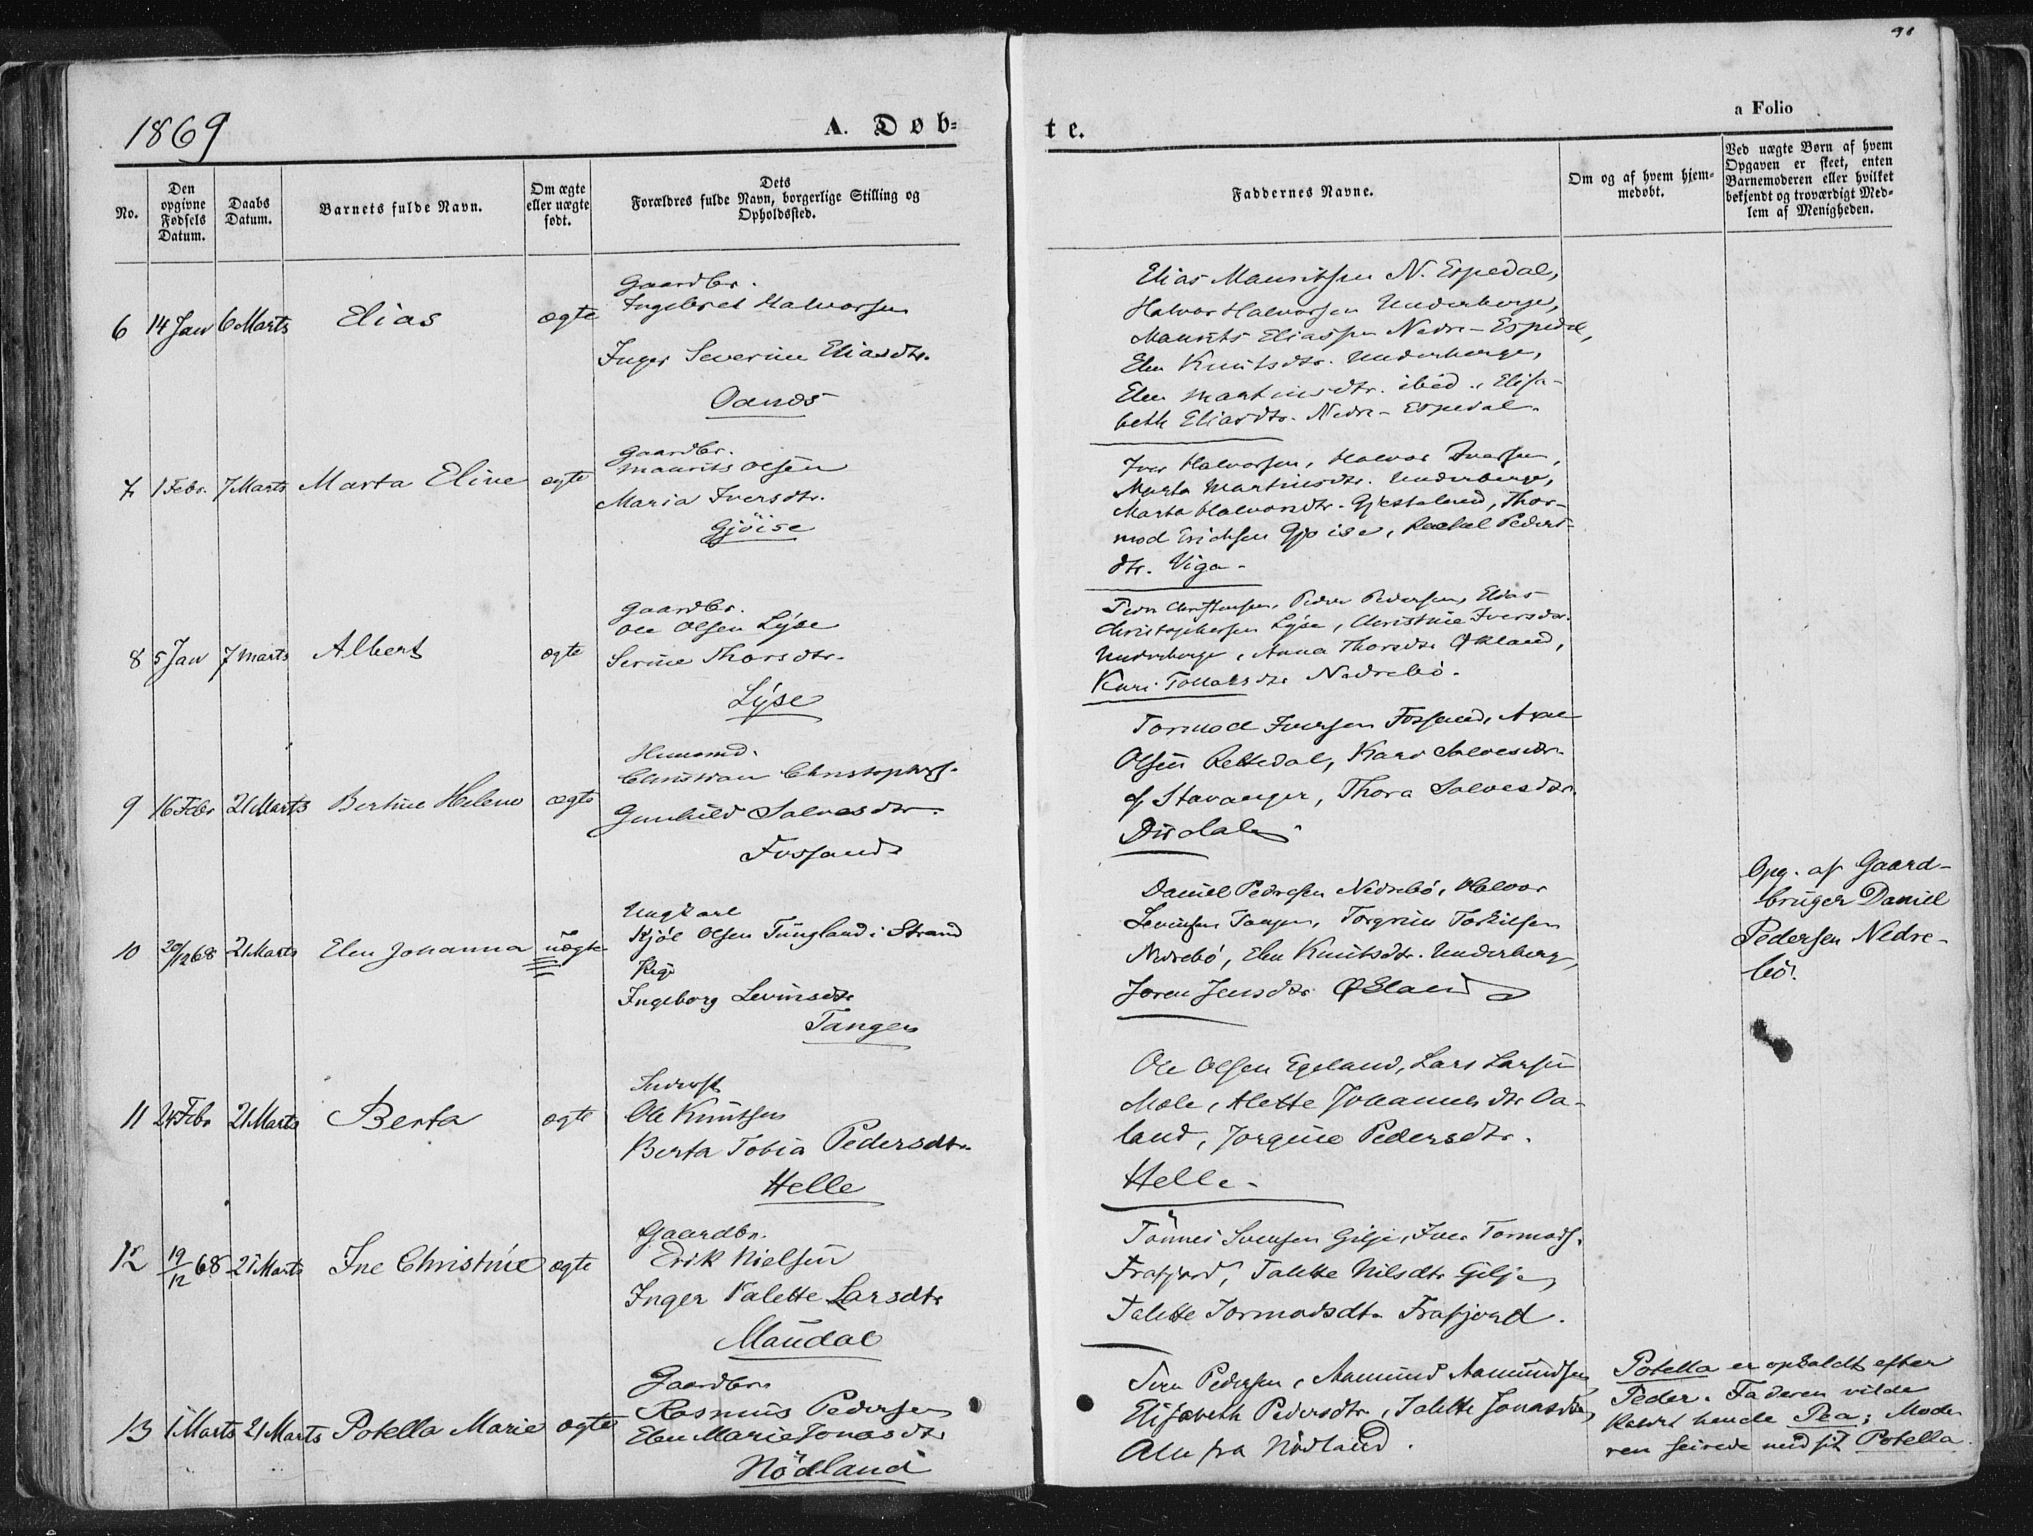 1869
A. Døb=
te.
a Folio
No.
Den opgivne Fødsels Datum.
Daabs Datum.
Barnets fulde Navn.
Om ægte eller uægte født.
Dets Forældres fulde Navn, borgerlige Stilling og Opholdssted.
Faddernes Navne.
Om og af hvem hjemmedøbt.
Ved uægte Børn af hvem Opgaven er skeet, enten Barnemoderen eller hvilket bekjendt og troværdigt Medlem af Menigheden.
6 14 Jan 6 Marts Elias ægte
Gaardbr.
Ingebret Halvorsen
Inger Severine Eliasdtr.
Oanes
Elias Mauritsen N. Espedal,
Halvor Halvorsen Underberge,
Maurits Eliassen Nedre-Espedal,
Elen Knutsdtr. Underberge,
Elen Martinsdtr. ibid., Elisa-
beth Eliasdtr. Nedre-Espedal.
7 1 Febr. 7 Marts Marta Eline ægte
Gaardbr.
Maurits Olsen
Maria Iversdtr.
Gjöise
Iver Halvorsen, Halvor Iversen,
Marta Martinsdtr. Underberge,
Marta Halvorsdtr. Gjesteland, Thor-
mod Erichsen Gjøise, Rachel Peders-
dtr. Viga.
8 5 Jan 7 Marts Albert ægte
Gaardbr.
Ole Olsen Lyse
Serine Thorsdtr.
Lyse
Peder Pedersen, Elias
Christophersen Lyse, Christine Iversdtr.
Underberge, Anna Thorsdtr Økland,
Kari Tollaksdtr Nedrebö.
9 16 Febr 21 Marts Bertine Helene ægte
Huusmd.
Christian Christophers.
Gunhild Salvesdtr.
Fossand
Tormod Iversen Fossand, Axel
Olsen Rettedal, Kari Salvesdtr.
af Stavanger, Thora Salvesdtr.
Dirdal
10 20/12 68 21 Marts Elen Johanna uægte
Ungkarl
Kjöl Olsen Tungland i Strand
Pige
Ingeborg Levinsdtr
Tangen
Daniel Pedersen Nedrebö, Halvor
Levinsen Tangen, Torgrim Torkilsen
Nedrebö, Elen Knutsdtr. Underberge,
Joren Jensdtr Økland
Opg. af Gaard-
bruger Daniel
Pedersen Nedre-
bö.
11 24 Febr 21 Marts Berta ægte
Inderst
Ole Knutsen
Berta Tobia Pedersdtr.
Helle
Ole Olsen Egeland, Lars Larsen
Mæle, Alette Johannesdtr Oa-
land, Jorgine Pedersdtr.
Helle.
12 19/12 68 21 Marts Ine Christine ægte
Gaardbr.
Erik Nielsen
Inger Valette Larsdtr
Maudal
Tönnes Svensen Gilje, Iver Tormods.
Frafjord, Talette Nilsdtr Gilje,
Talette Tormodsdtr Frafjord.
13 1 Marts 21 Marts Potella Marie ægte
Gaardbr.
Rasmus Pedersen
Elen Marie Jonasdtr
Nödland
Pedersen, Aamund Aamundsen
Elisabeth Pedersdtr, Talette Jonasdtr,
Alle fra Nödland.
Potella er opkaldt efter
Peder. Faderen vilde
kaldt hende Pea; Mode-
ren seirede med sit Potella.